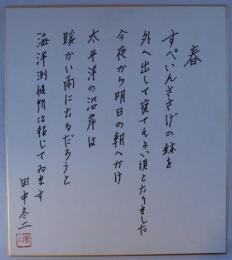 春
すぺいんささげの鉢を
外へ出して寝てもよい頃となりました
今夜から明日の朝へかけ
太平洋の沿岸は
暖かい雨になるだらうと
海洋測候所は報じてゐます
田中冬二